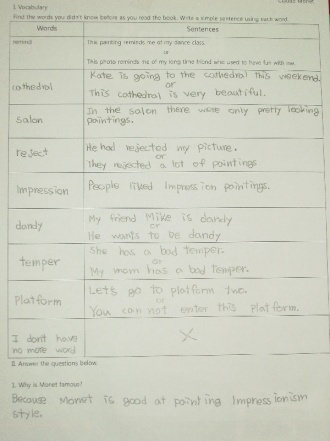 Claude Monet
I. Vocabulary
Find the words you didn't know before as you read the book. Write a simple sentence using each word.
Words Sentences
remind This painting reminds me of my dance class.
or
This photo reminds me of my long time friend who used to have fun with me.
cathedral Kate is going to the cathedral this weekend.
or
This cathedral is very beautiful.
salon In the salon there were only pretty looking
paintings.
reject He had rejected my picture.
or
They rejected a lot of paintings
Impression People liked Impression paintings.
dandy My friend Mike is dandy
or
He wants to be dandy
temper She has a bad temper.
or
My mom has a bad temper.
Platform Let's go to platform two.
or
You can not enter this platform.
I don't have
no more word X
II. Answer the questions below.
1. Why is Monet famous?
Because Monet is good at painting Impressionism
style.